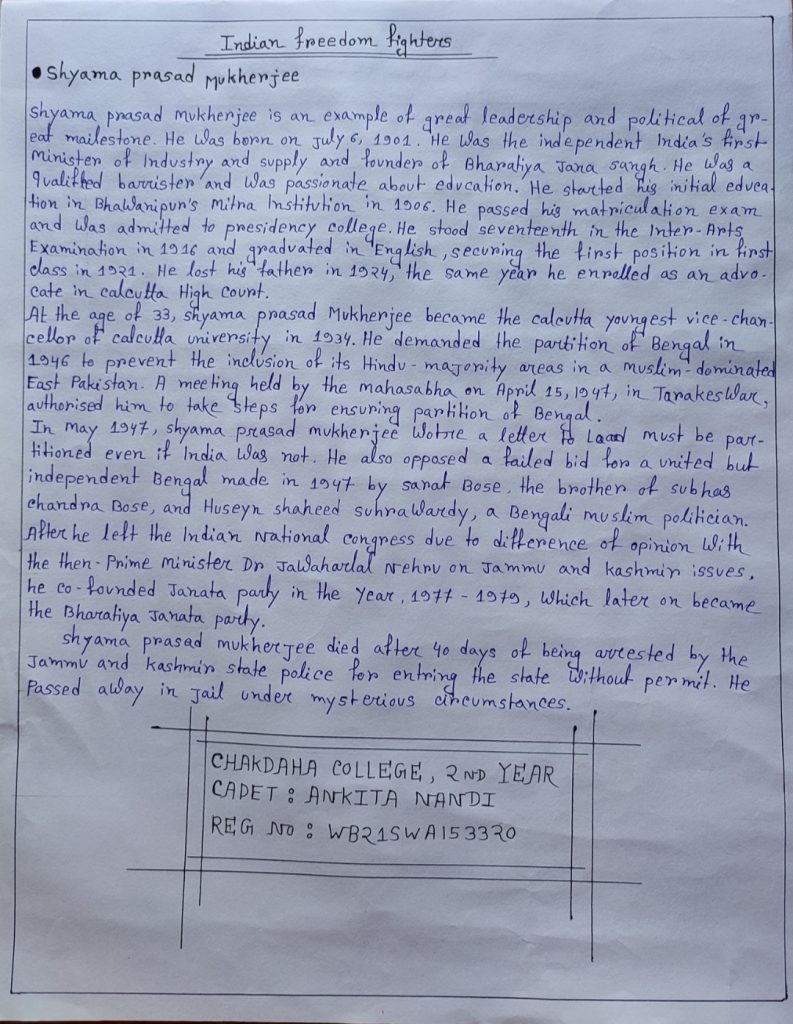 Indian freedom fighters
• Shyama prasad Mukherjee
Shyama prasad Mukherjee is an example of great leadership and political of gr-
eat mailestone. He Was born on July 6, 1901. He Was the independent India's first
Minister of Industry and supply and founder of Bharatiya Jana sangh. He Was a
qualified barrister and Was passionate about education. He started his initial educa-
tion in Bhawanipur's Mitra Institution in 1906. He passed his matriculation exam
and Was admitted to presidency college. He stood seventeenth in the Inter-Arts
Examination in 1916 and graduated in English, securing the first position in first
class in 1921. He lost his father in 1924, the same year he enrolled as an advo-
cate in calcutta High Court.
At the age of 33, shyama prasad Mukherjee became the calcutta youngest vice-chan-
cellor of calcutta university in 1934. He demanded the partition of Bengal in
1946 to prevent the inclusion of its Hindu-majority areas in a muslim-dominated
East Pakistan. A meeting held by the mahasabha on April 15, 1947, in Tarakeswar,
authorised him to take steps for ensuring partition of Bengal.
In May 1947, shyama prasad mukherjee Wotre a letter to Laad must be par-
titioned even if India Was not. He also opposed a failed bid for a united but
independent Bengal made in 1947 by sarat Bose, the brother of subhas
chandra Bose, and Huseyn shaheed suhrawardy, a Bengali muslim politician.
After he left the Indian National congress due to difference of opinion With
the then-Prime minister Dr Jawaharlal Nehru on Jammu and kashmir issues,
he co-founded Janata party in the Year, 1977-1979, Which later on became
the Bharatiya Janata party.
shyama prasad mukherjee died after 40 days of being arrested by the
Jammu and kashmir state police for entring the state Without permit. He
Passed away in Jail under mysterious circumstances.
CHAKDAHA COLLEGE, 2ND YEAR
CADET : ANKITA NANDI
REG NO : WB21SWA153320